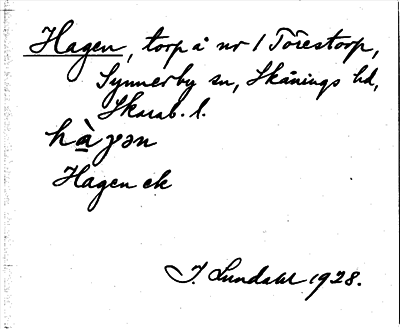 Hagen, torp å nr 1 Torestorp,
Synnerby sn, Skånings hd,
Skarab. l.
hàgən
Hagen ek
I. Lundahl 1928.